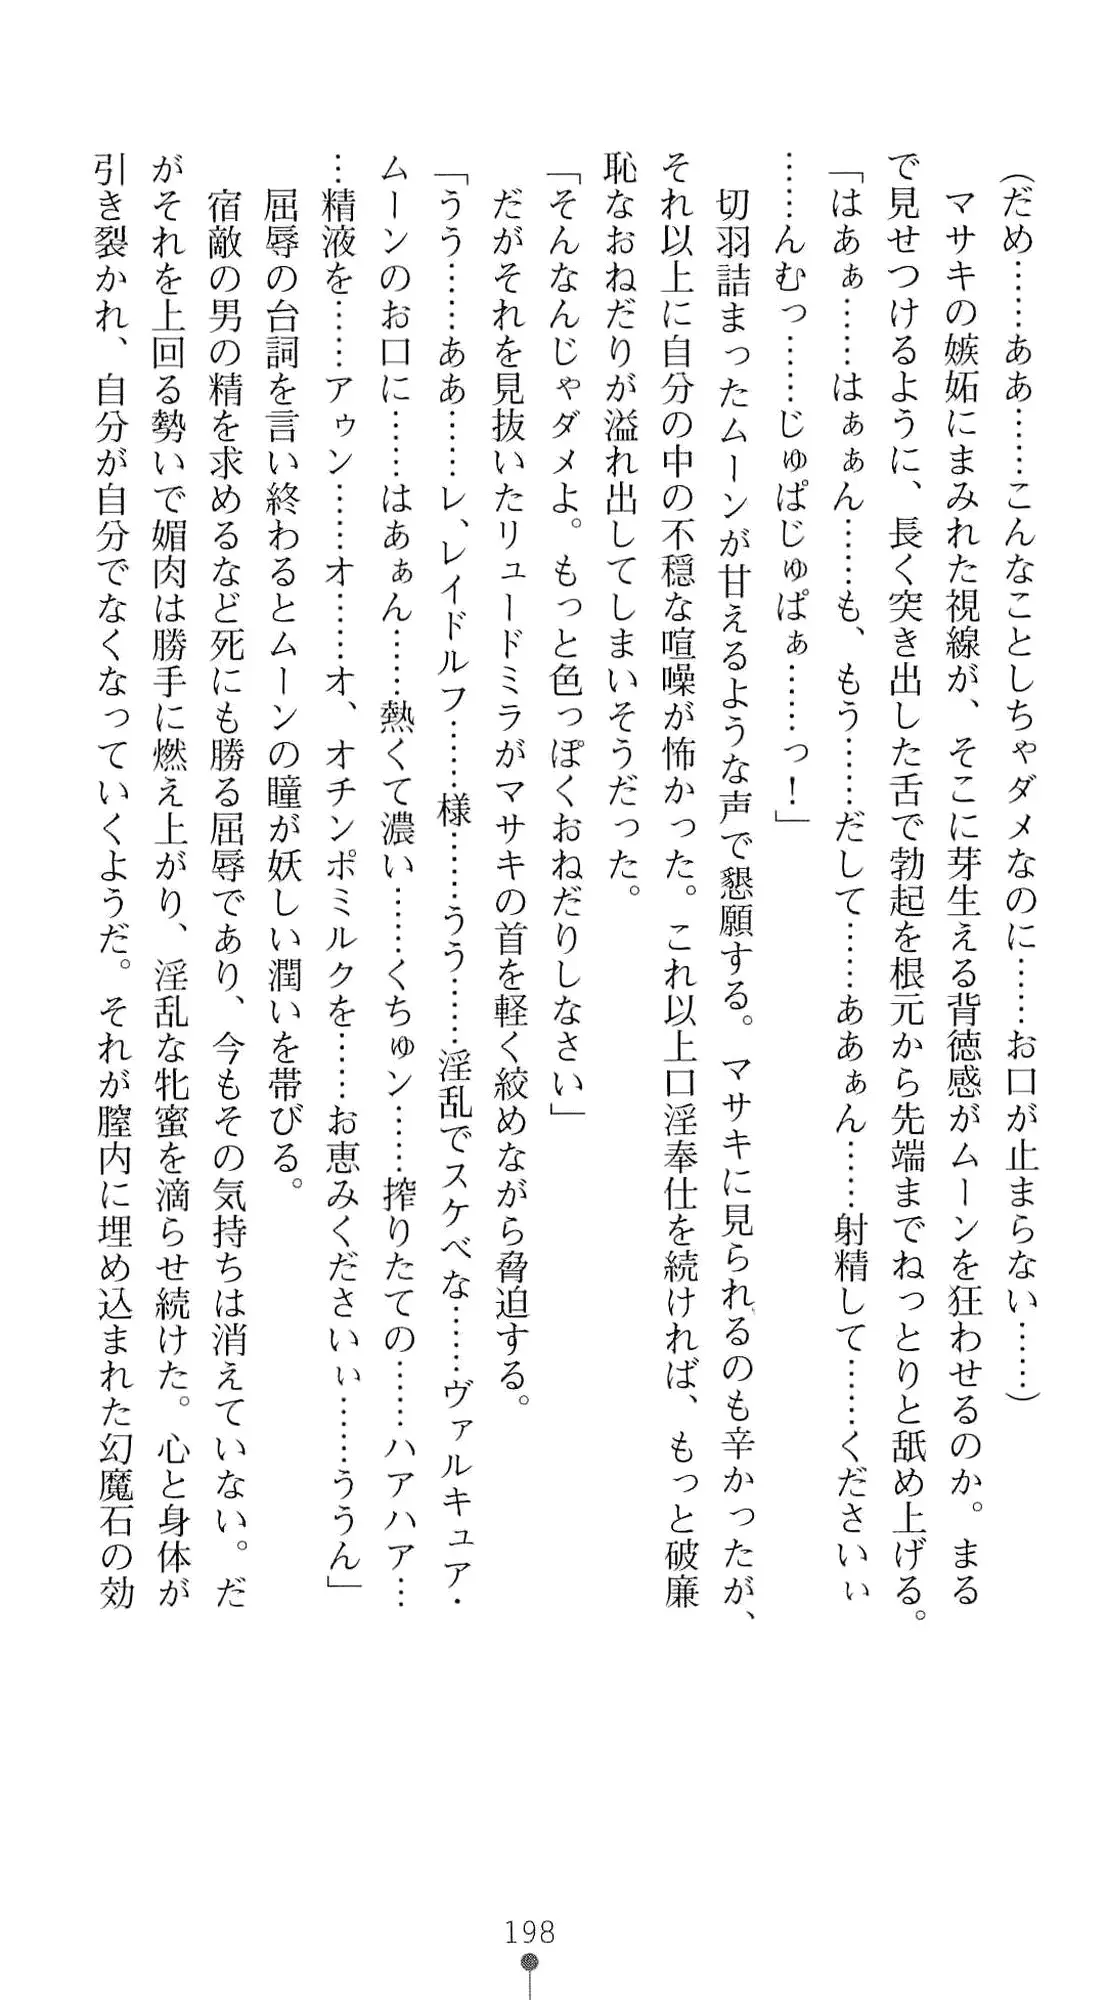 （だめ……ああ……こんなことしちゃダメなのに……お口が止まらない……）
　マサキの嫉妬にまみれた視線が、そこに芽生える背徳感がムーンを狂わせるのか。まる
で見せつけるように、長く突き出した舌で勃起を根元から先端までねっとりと舐め上げる。
「はあぁ……はぁぁん……も、もう……だして……ああぁん……射精して……くださいぃ
……んむっ……じゅぱじゅぱぁ……っ！」
　切羽詰まったムーンが甘えるような声で懇願する。マサキに見られるのも辛かったが、
それ以上に自分の中の不穏な喧噪が怖かった。これ以上口淫奉仕を続ければ、もっと破廉
恥なおねだりが溢れ出してしまいそうだった。
「そんなんじゃダメよ。もっと色っぽくおねだりしなさい」
　だがそれを見抜いたリュードミラがマサキの首を軽く絞めながら脅迫する。
「うう……ああ……レ、レイドルフ……様……うう……淫乱でスケベな……ヴァルキュア・
ムーンのお口に……はあぁん……熱くて濃い……くちゅン……搾りたての……ハアハア…
…精液を……アゥン……オ……オ、オチンポミルクを……お恵みくださいぃ……ううん」
　屈辱の台詞を言い終わるとムーンの瞳が妖しい潤いを帯びる。
　宿敵の男の精を求めるなど死にも勝る屈辱であり、今もその気持ちは消えていない。だ
がそれを上回る勢いで媚肉は勝手に燃え上がり、淫乱な牝蜜を滴らせ続けた。心と身体が
引き裂かれ、自分が自分でなくなっていくようだ。それが膣内に埋め込まれた幻魔石の効
198